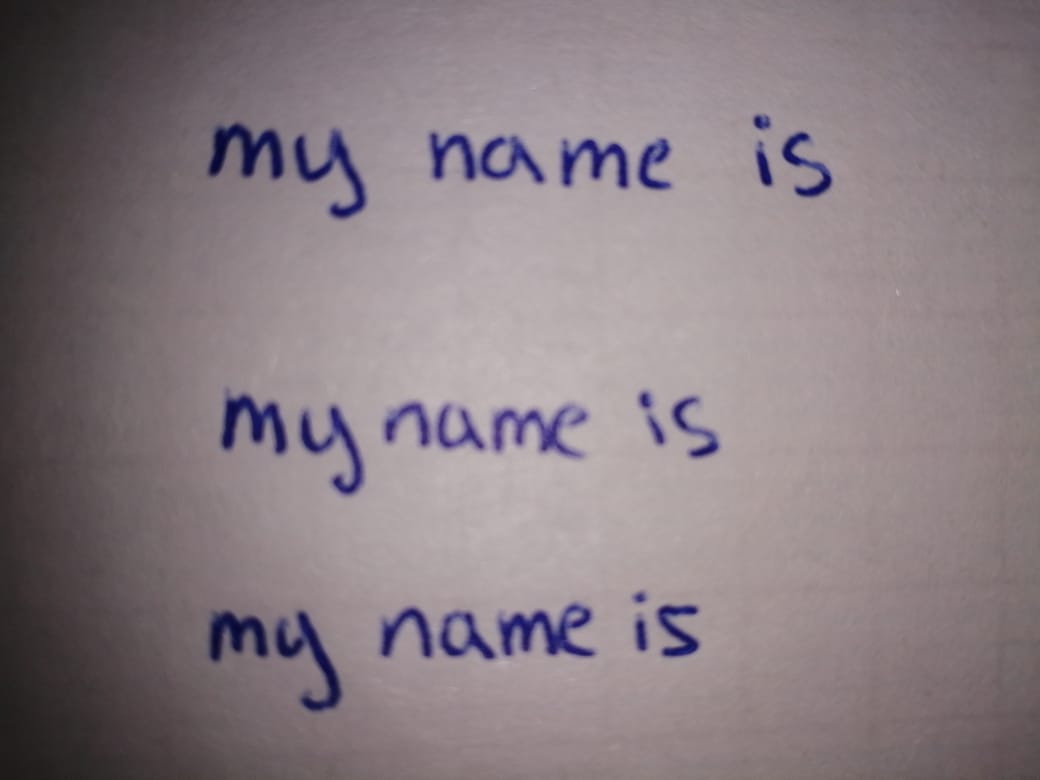 my name is
my name is
my name is